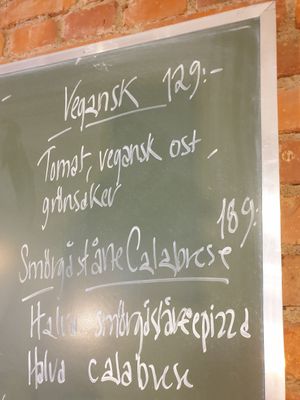 Vegansk 129:-
Tomat, vegansk ost,
grönsaker
189:
Smörgåstårte Calabrese
Halva smörgåstårtepizza
Halva calabrese